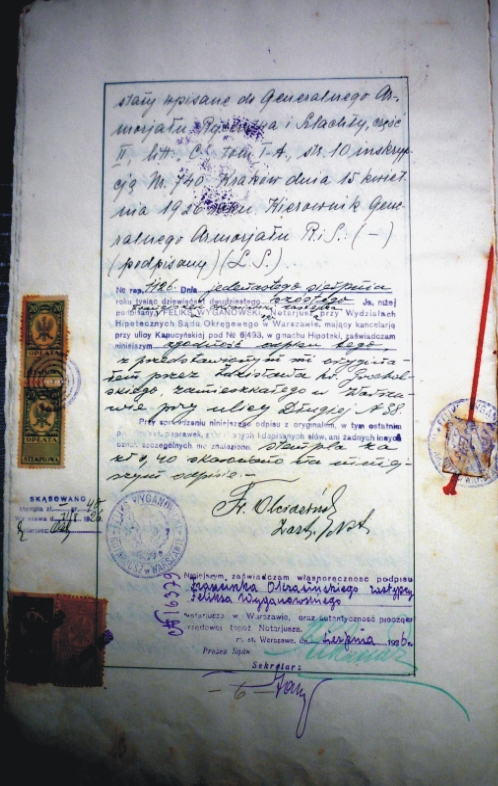 stały wpisane do Generalnego Ar-
morjału Rycerstwa i Szlachty, część
II litt. C. tom I-A, str. 10 inskryp-
cją Nr. 740 Kraków dnia 15 kwiet-
nia 1926 roku. Kierownik Gene-
ralnego Armorjału R.i S.: (-)
(podpisany) (L.S.)
No rep. 1126. Dnia jedenastego sierpnia
roku tysiąc dziewięćset dwudziestego szóstego Ja, niżej
podpisany FELIKS WYGANOWSKI, Notarjusz przy Wydziałach
Hipotecznych Sądu Okręgowego w Warszawie, mający kancelarję
przy ulicy Kapucyńskiej pod Nr 6|493, w gmachu Hipoteki, zaświadczam
niniejszym zgodność odpisu tego
z przedstawionym mi orygina-
łem przez Zdzisława
zamieszkałego w Warsza-
wie przy ulicy Długiej N 38.
Przy sprawdzeniu niniejszego odpisu z oryginałem, w tym ostatnim
poprawek, dopisanych słów, ani żadnych innych
cech szczególnych nie znalazłem. Stempla na
zł 4, 40 skasowano na niniej-
szym odpisie.
SKASOWANO
FELIKS WYGANOWSKI
20 20
OPŁATA
OPŁATA
STEMPLOWA
Zast. Not.
N 16379
Niniejszym zaświadczam własnoręczność podpisu
Franciszka zastępcy
Feliksa Wyganowskiego
Notarjusza w Warszawie, oraz autentyczność pieczęci
urzędowej tegoż Notarjusza.
m. st. Warszawa, sierpnia 1926 r.
Prezes Sądu
Sekretarz
- 6 -